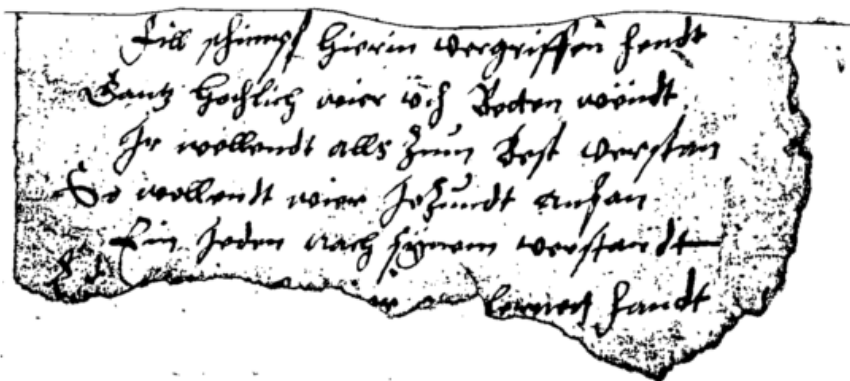 Fill schimpf hierin vergriffen hendt
Gantz hochlich wier üch Betten wöndt
Ir wöllendt alls zum Best verstan
So wöllendt wier Jezundt anfan
Ein Jeden nach synem verstandt
lernen handt